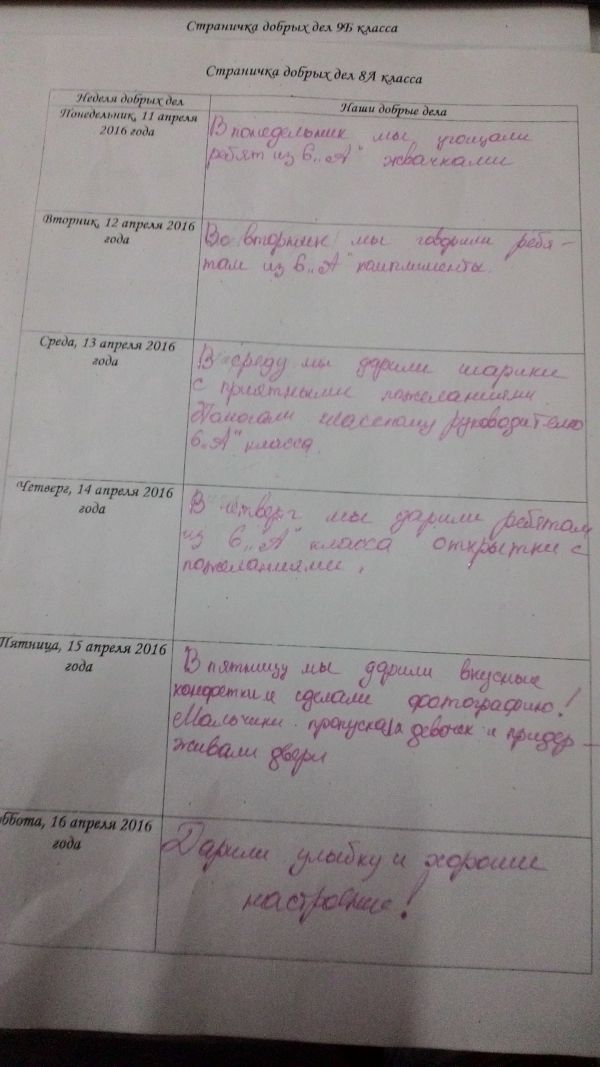 Страничка добрых дел 9Б класса
Страничка добрых дел 8А класса
Неделя добрых дел
Наши добрые дела
Понедельник, 11 апреля
2016 года
В понедельник мы угощали
ребят из 6 „А" жвачками
Вторник, 12 апреля 2016
года
Во вторник мы говорили ребя-
там из 6 „А" комплименты.
Среда, 13 апреля 2016
года
В среду мы дарили шарики
с приятными пожеланиями.
Помогали классному руководителю
6 „А" класса.
Четверг, 14 апреля 2016
года
В четверг мы дарили ребятам
из 6 „А" класса открытки с
пожеланиями.
Пятница, 15 апреля 2016
года
В пятницу мы дарили вкусные
конфетки и сделали фотографию!
Мальчики пропускали девочек и придер-
живали двери
ббота, 16 апреля 2016
года
Дарили улыбку и хорошее
настроение!